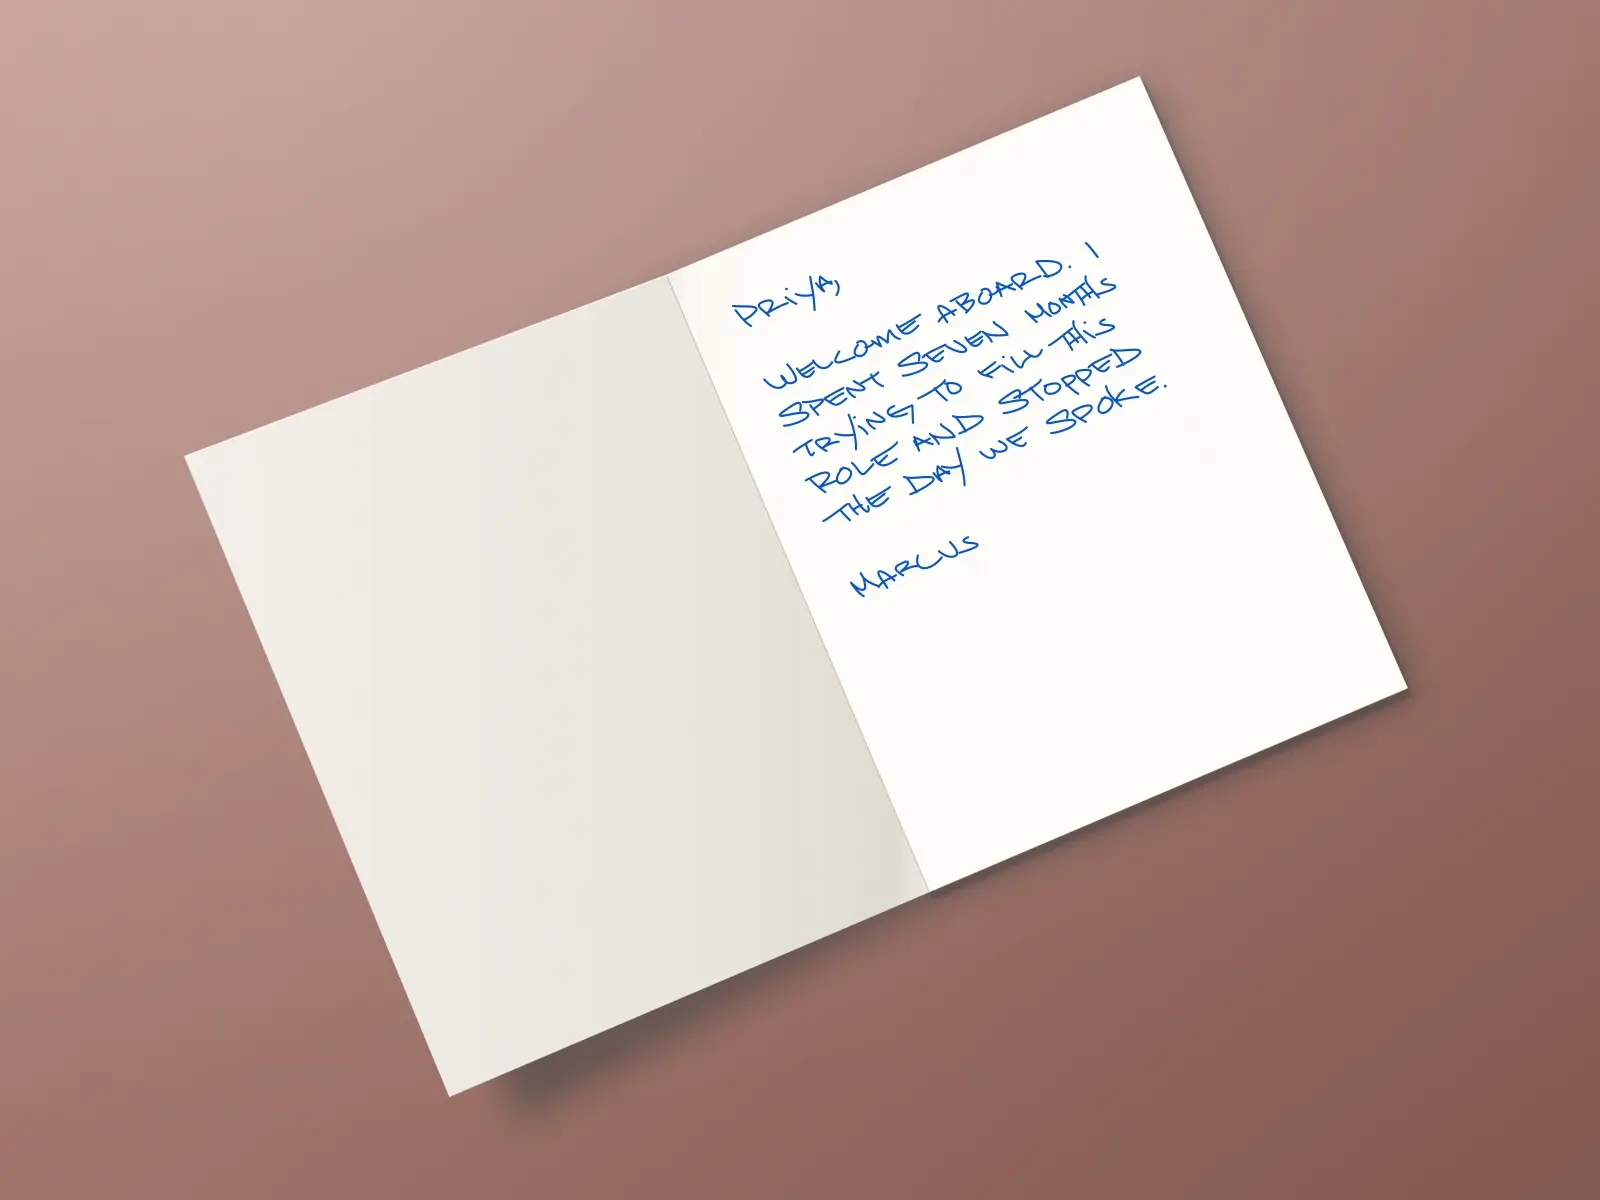 PRiYA,
WELCOME ABOARD. I
SPENT SEVEN MONTHS
TRYiNG TO FiLL THiS
ROLE AND STOPPED
THE DAY WE SPOKE.
MARCUS